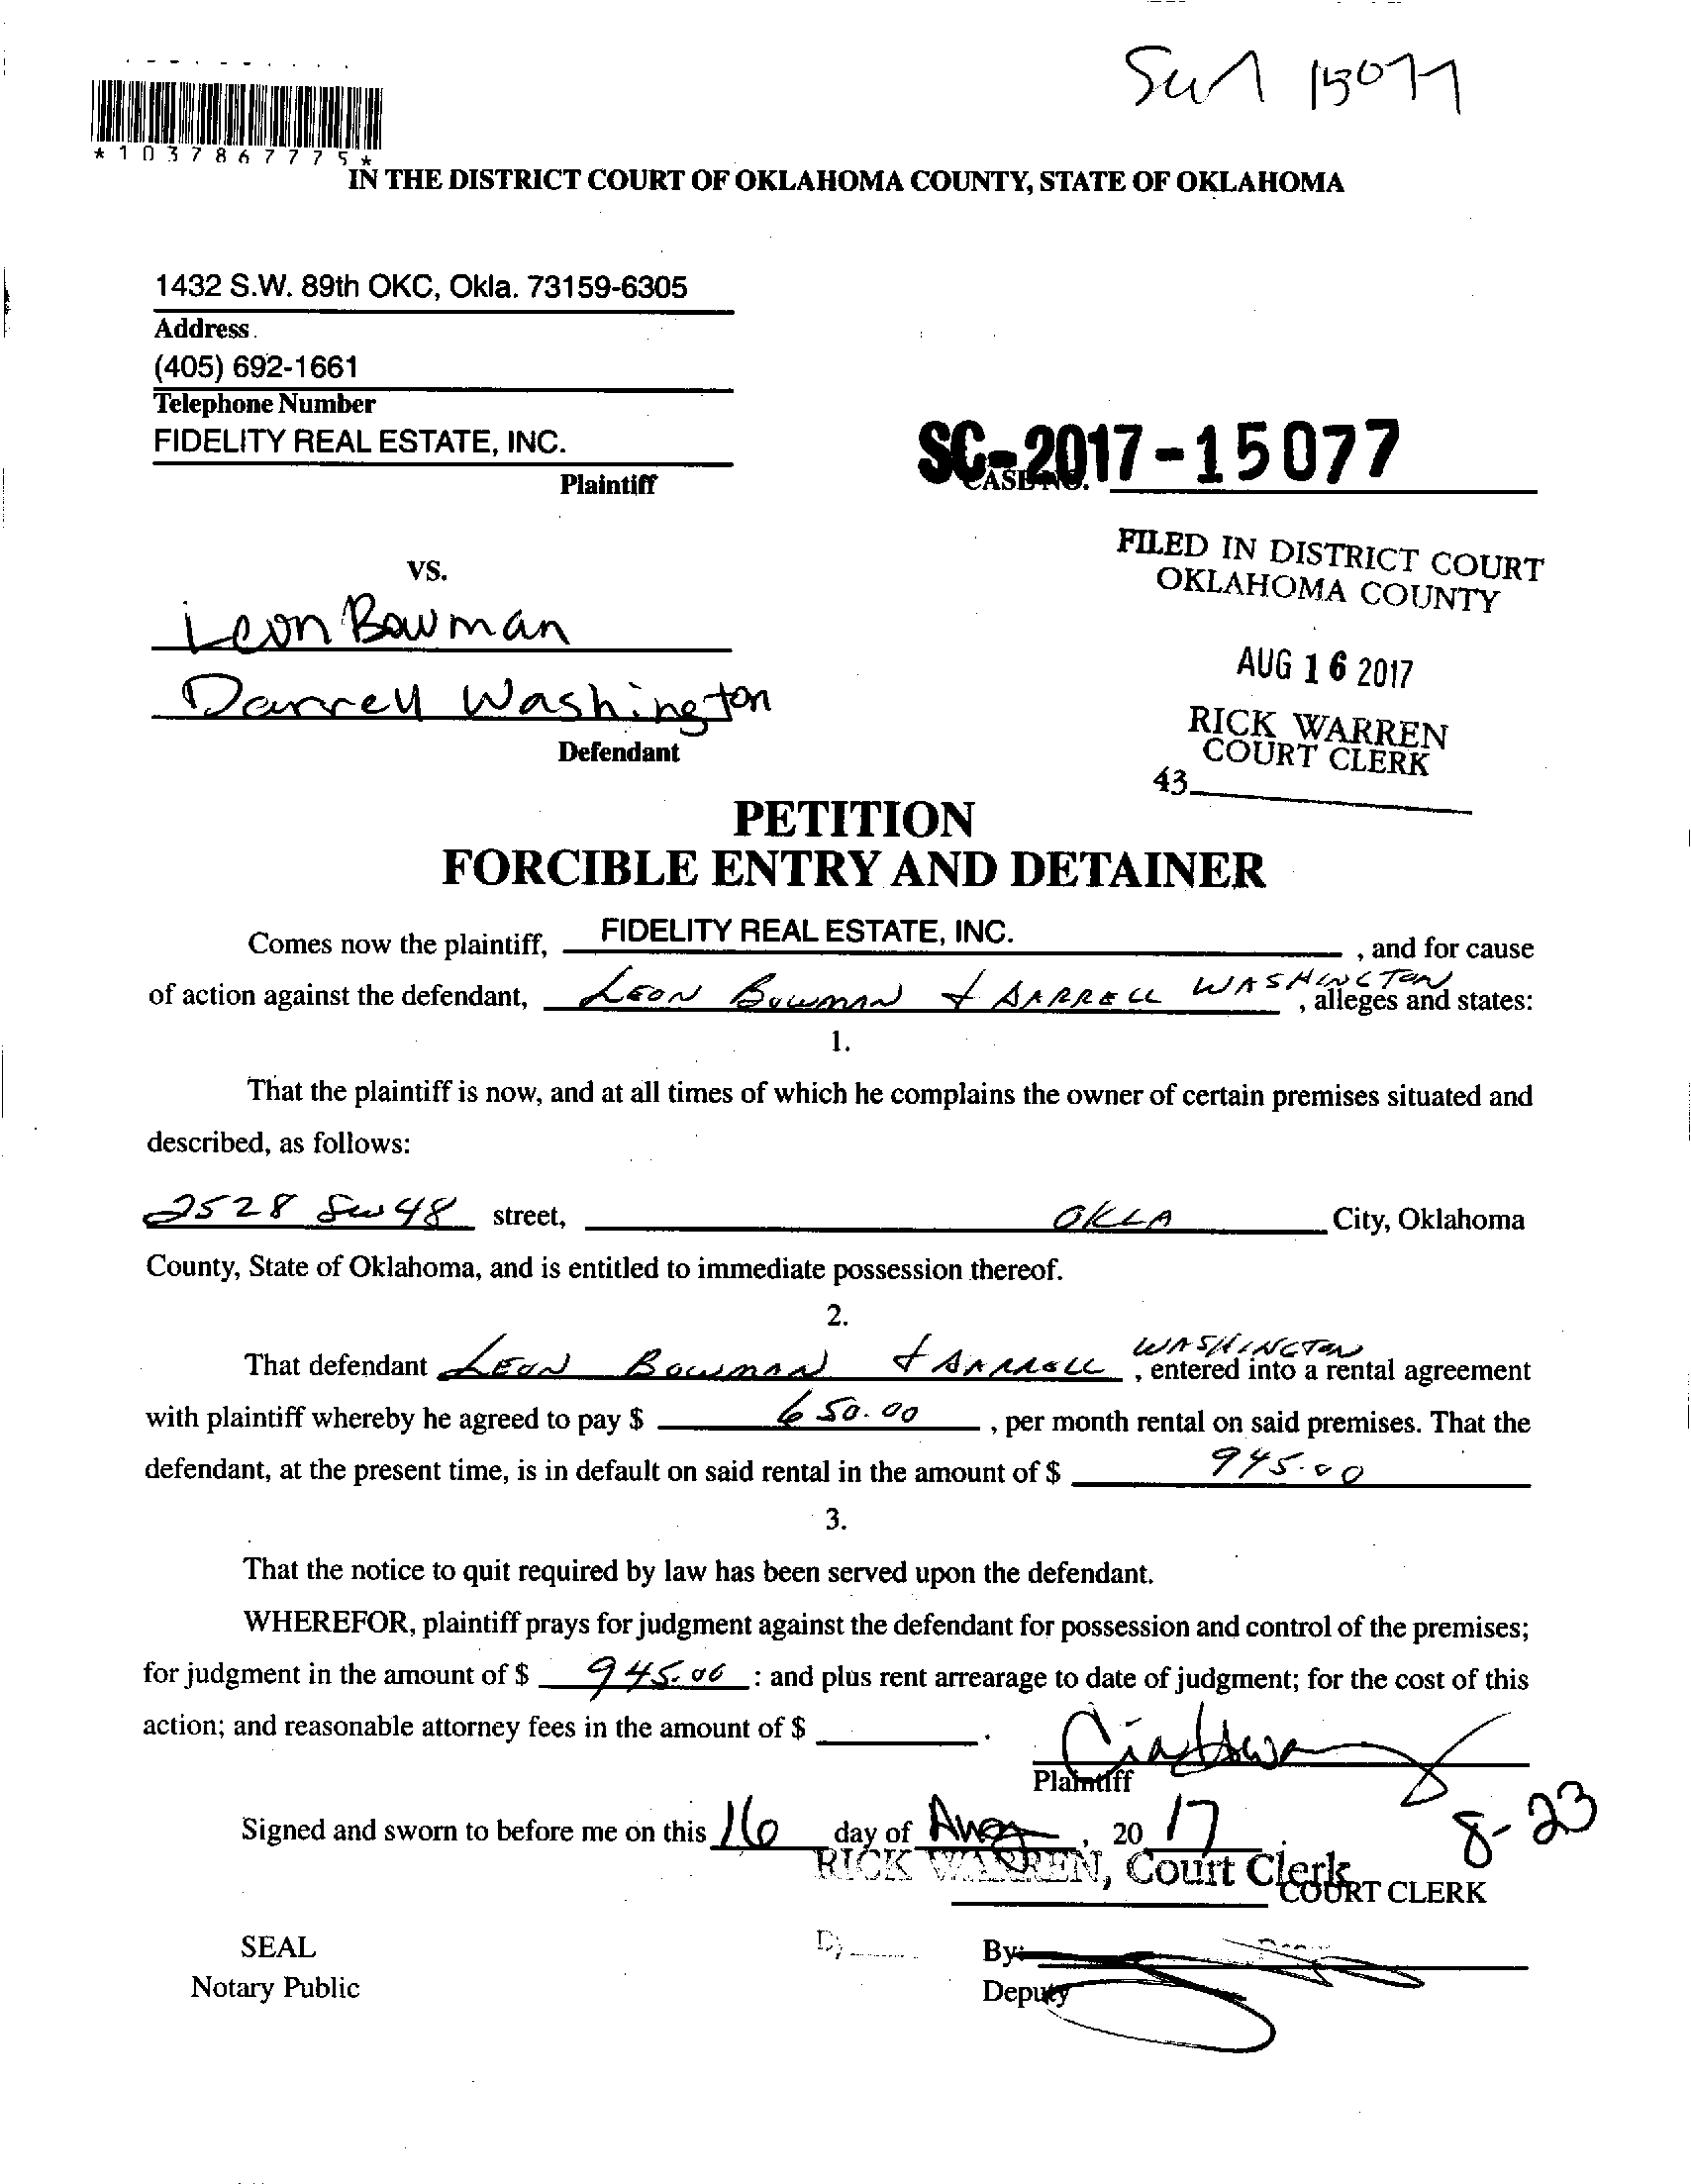 15077
*1037867775*
IN THE DISTRICT COURT OF OKLAHOMA COUNTY, STATE OF OKLAHOMA
1432 S.W. 89th OKC, Okla. 73159-6305
Address
(405) 692-1661
Telephone Number
FIDELITY REAL ESTATE, INC.
Plaintiff
SC-2017-15077
CASE NO.
VS.
FILED IN DISTRICT COURT
OKLAHOMA COUNTY
Leon Bowman
AUG 16 2017
Darrell Washington
RICK WARREN
COURT CLERK
Defendant
43
PETITION
FORCIBLE ENTRY AND DETAINER
Comes now the plaintiff, FIDELITY REAL ESTATE, INC. , and for cause
of action against the defendant, LEON BOWMAN + DARRELL WASHINGTON , alleges and states:
1.
That the plaintiff is now, and at all times of which he complains the owner of certain premises situated and
described, as follows:
2528 SW 48 street, OKLA City, Oklahoma
County, State of Oklahoma, and is entitled to immediate possession thereof.
2.
That defendant LEON BOWMAN + DARRELL WASHINGTON , entered into a rental agreement
with plaintiff whereby he agreed to pay $ 650.00 , per month rental on said premises. That the
defendant, at the present time, is in default on said rental in the amount of $ 945.00
3.
That the notice to quit required by law has been served upon the defendant.
WHEREFOR, plaintiff prays for judgment against the defendant for possession and control of the premises;
for judgment in the amount of $ 945.00 : and plus rent arrearage to date of judgment; for the cost of this
action; and reasonable attorney fees in the amount of $ .
Plaintiff
8-23
Signed and sworn to before me on this 16 day of Aug , 20 17 .
RICK WARREN, Court Clerk
COURT CLERK
SEAL
By:
Notary Public
Deputy